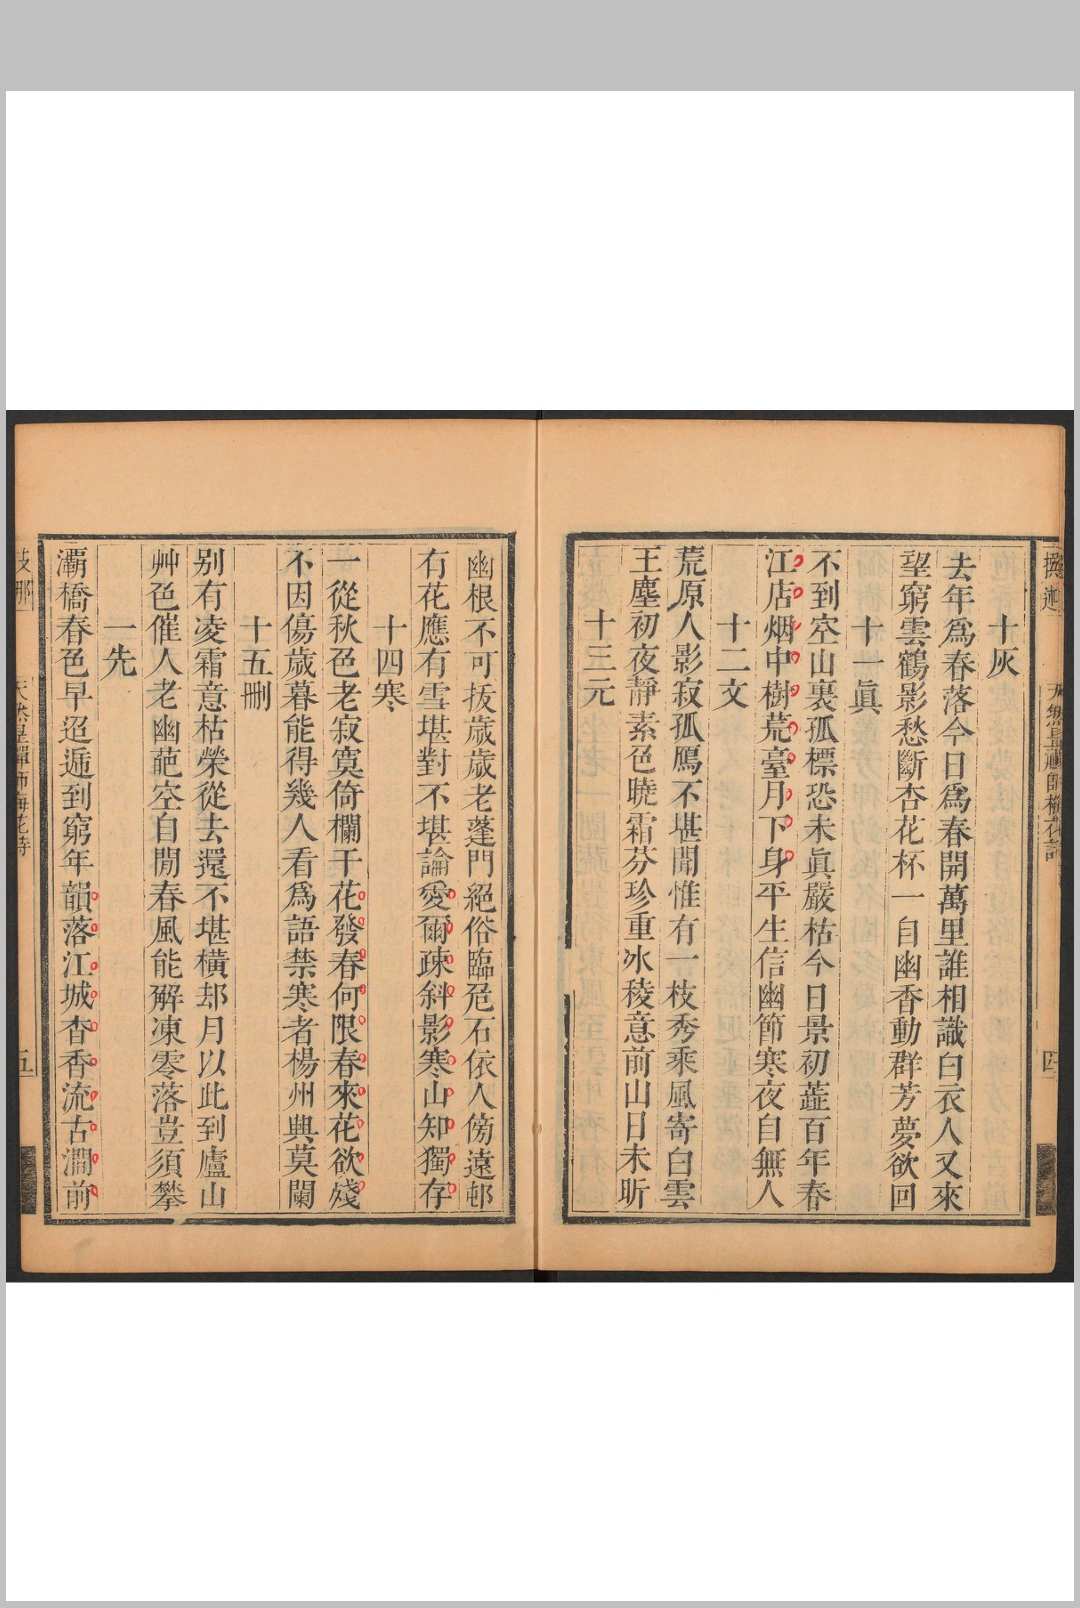 十灰
去年爲春落今日爲春開萬里誰相識白衣人又來
望窮雲鶴影愁斷杏花杯一自幽香動群芳夢欲回
十一眞
不到空山裏孤標恐未眞嚴枯今日景初蘁百年春
江店烟中樹荒臺月下身平生信幽節寒夜自無人
十二文
荒原人影寂孤鴈不堪聞惟有一枝秀乘風寄白雲
王塵初夜靜素色曉霜芬珍重冰稜意前山日未昕
十三元
幽根不可拔歲歲老蓬門絕俗臨危石依人傍遠邨
有花應有雪堪對不堪論愛爾疎斜影寒山知獨存
十四寒
一從秋色老寂寞倚欄干花發春何限春來花欲殘
不因傷歲暮能得幾人看爲語禁寒者楊州興莫闌
十五刪
别有凌霜意枯榮從去還不堪橫却月以此到廬山
艸色催人老幽葩空自閒春風能解凍零落豈須攀
一先
灞橋春色早迢遞到窮年韻落江城杳香流古澗前
五